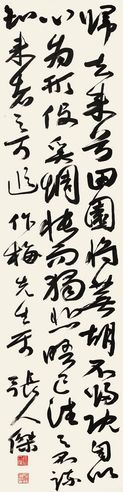 歸去来兮田園将蕪胡不歸既自以
心為形役奚惆悵而獨悲悟已往之不諫
知来者之可追 作梅先生屬 張人傑